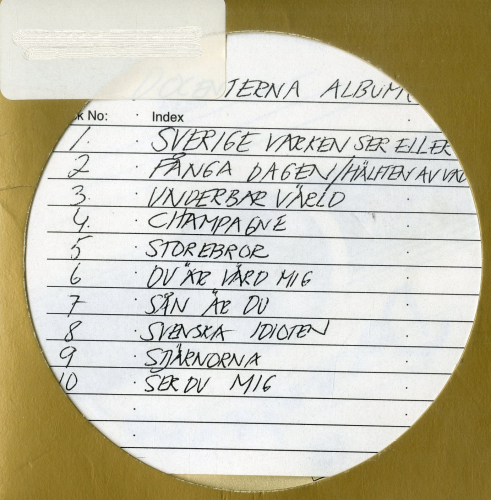 DOCENTERNA ALBUM
k No: Index
1. SVERIGE VARKEN SER ELLER
2 FÅNGA DAGEN/HÄLFTEN AV
3. UNDERBAR VÄRLD
4. CHAMPAGNE
5 STOREBROR
6 DU ÄR VÄRD MIG
7 SÅN ÄR DU
8 SVENSKA IDIOTEN
9 STJÄRNORNA
10 SER DU MIG